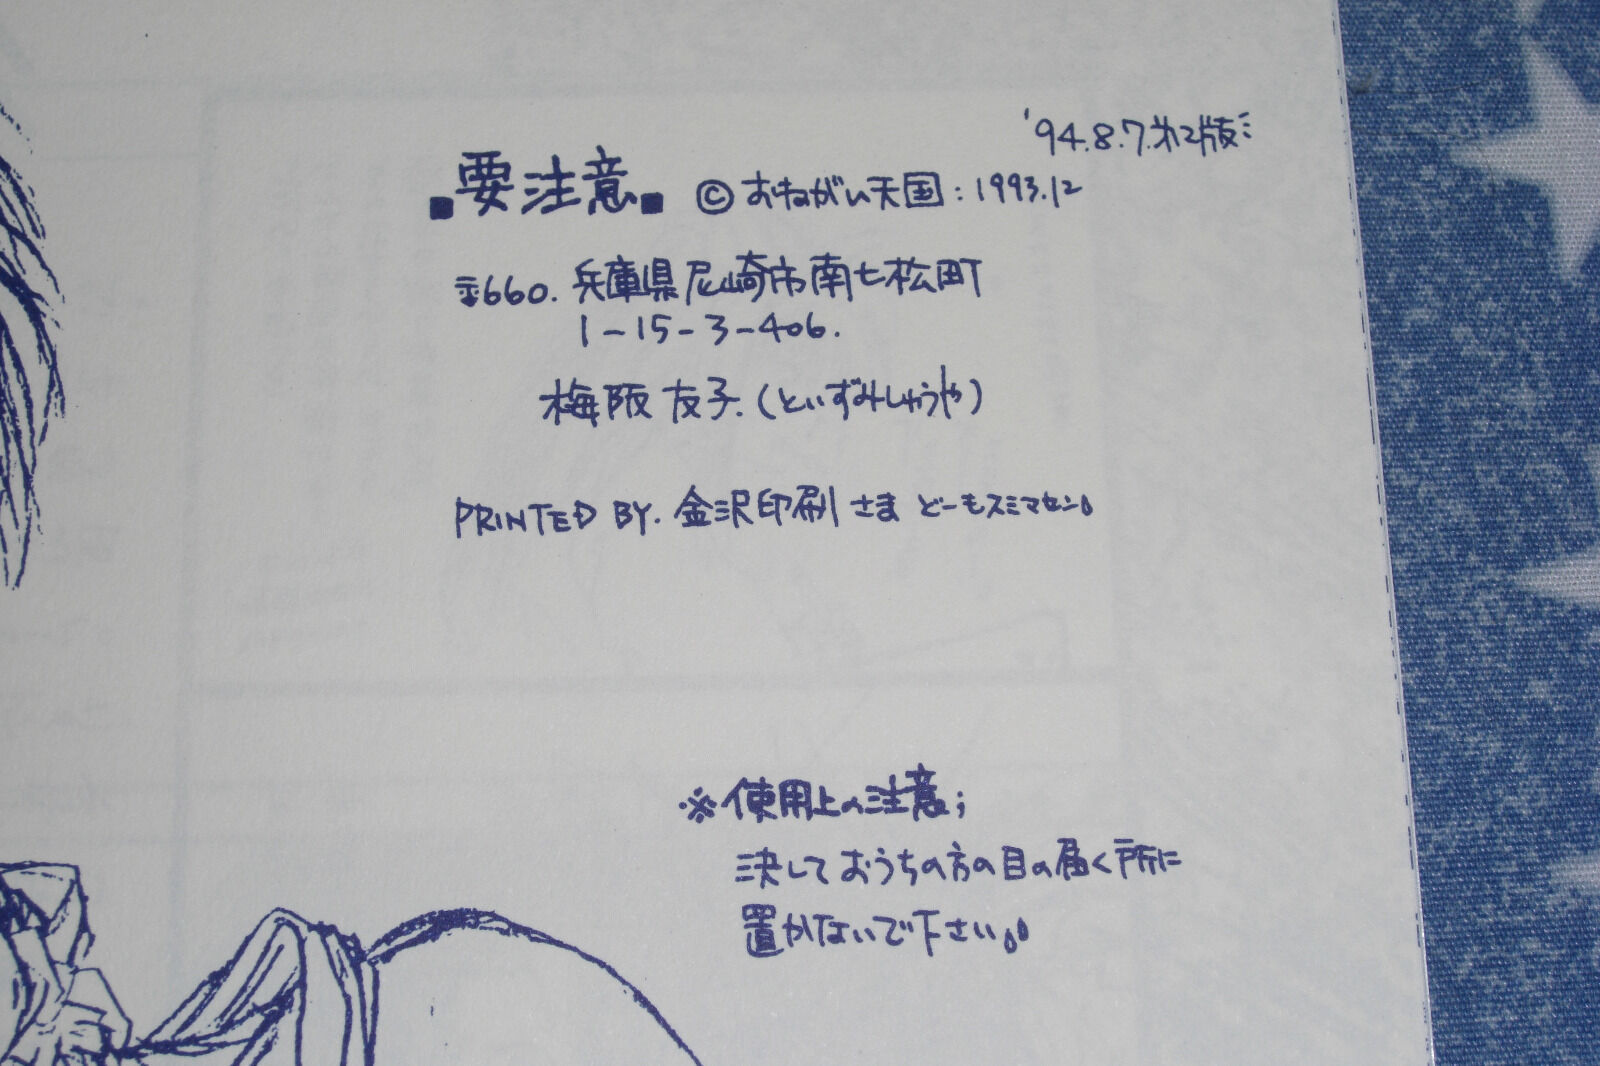 '94.8.7.第2版
■要注意■ ©おねがい天国:1993.12
〒660. 兵庫県尼崎市南七松町
1-15-3-406.
梅阪友子.(といずみしゅうや)
PRINTED BY. 金沢印刷さま どーもスミマセン。
※使用上の注意;
決しておうちの方の目の届く所に
置かないで下さい。